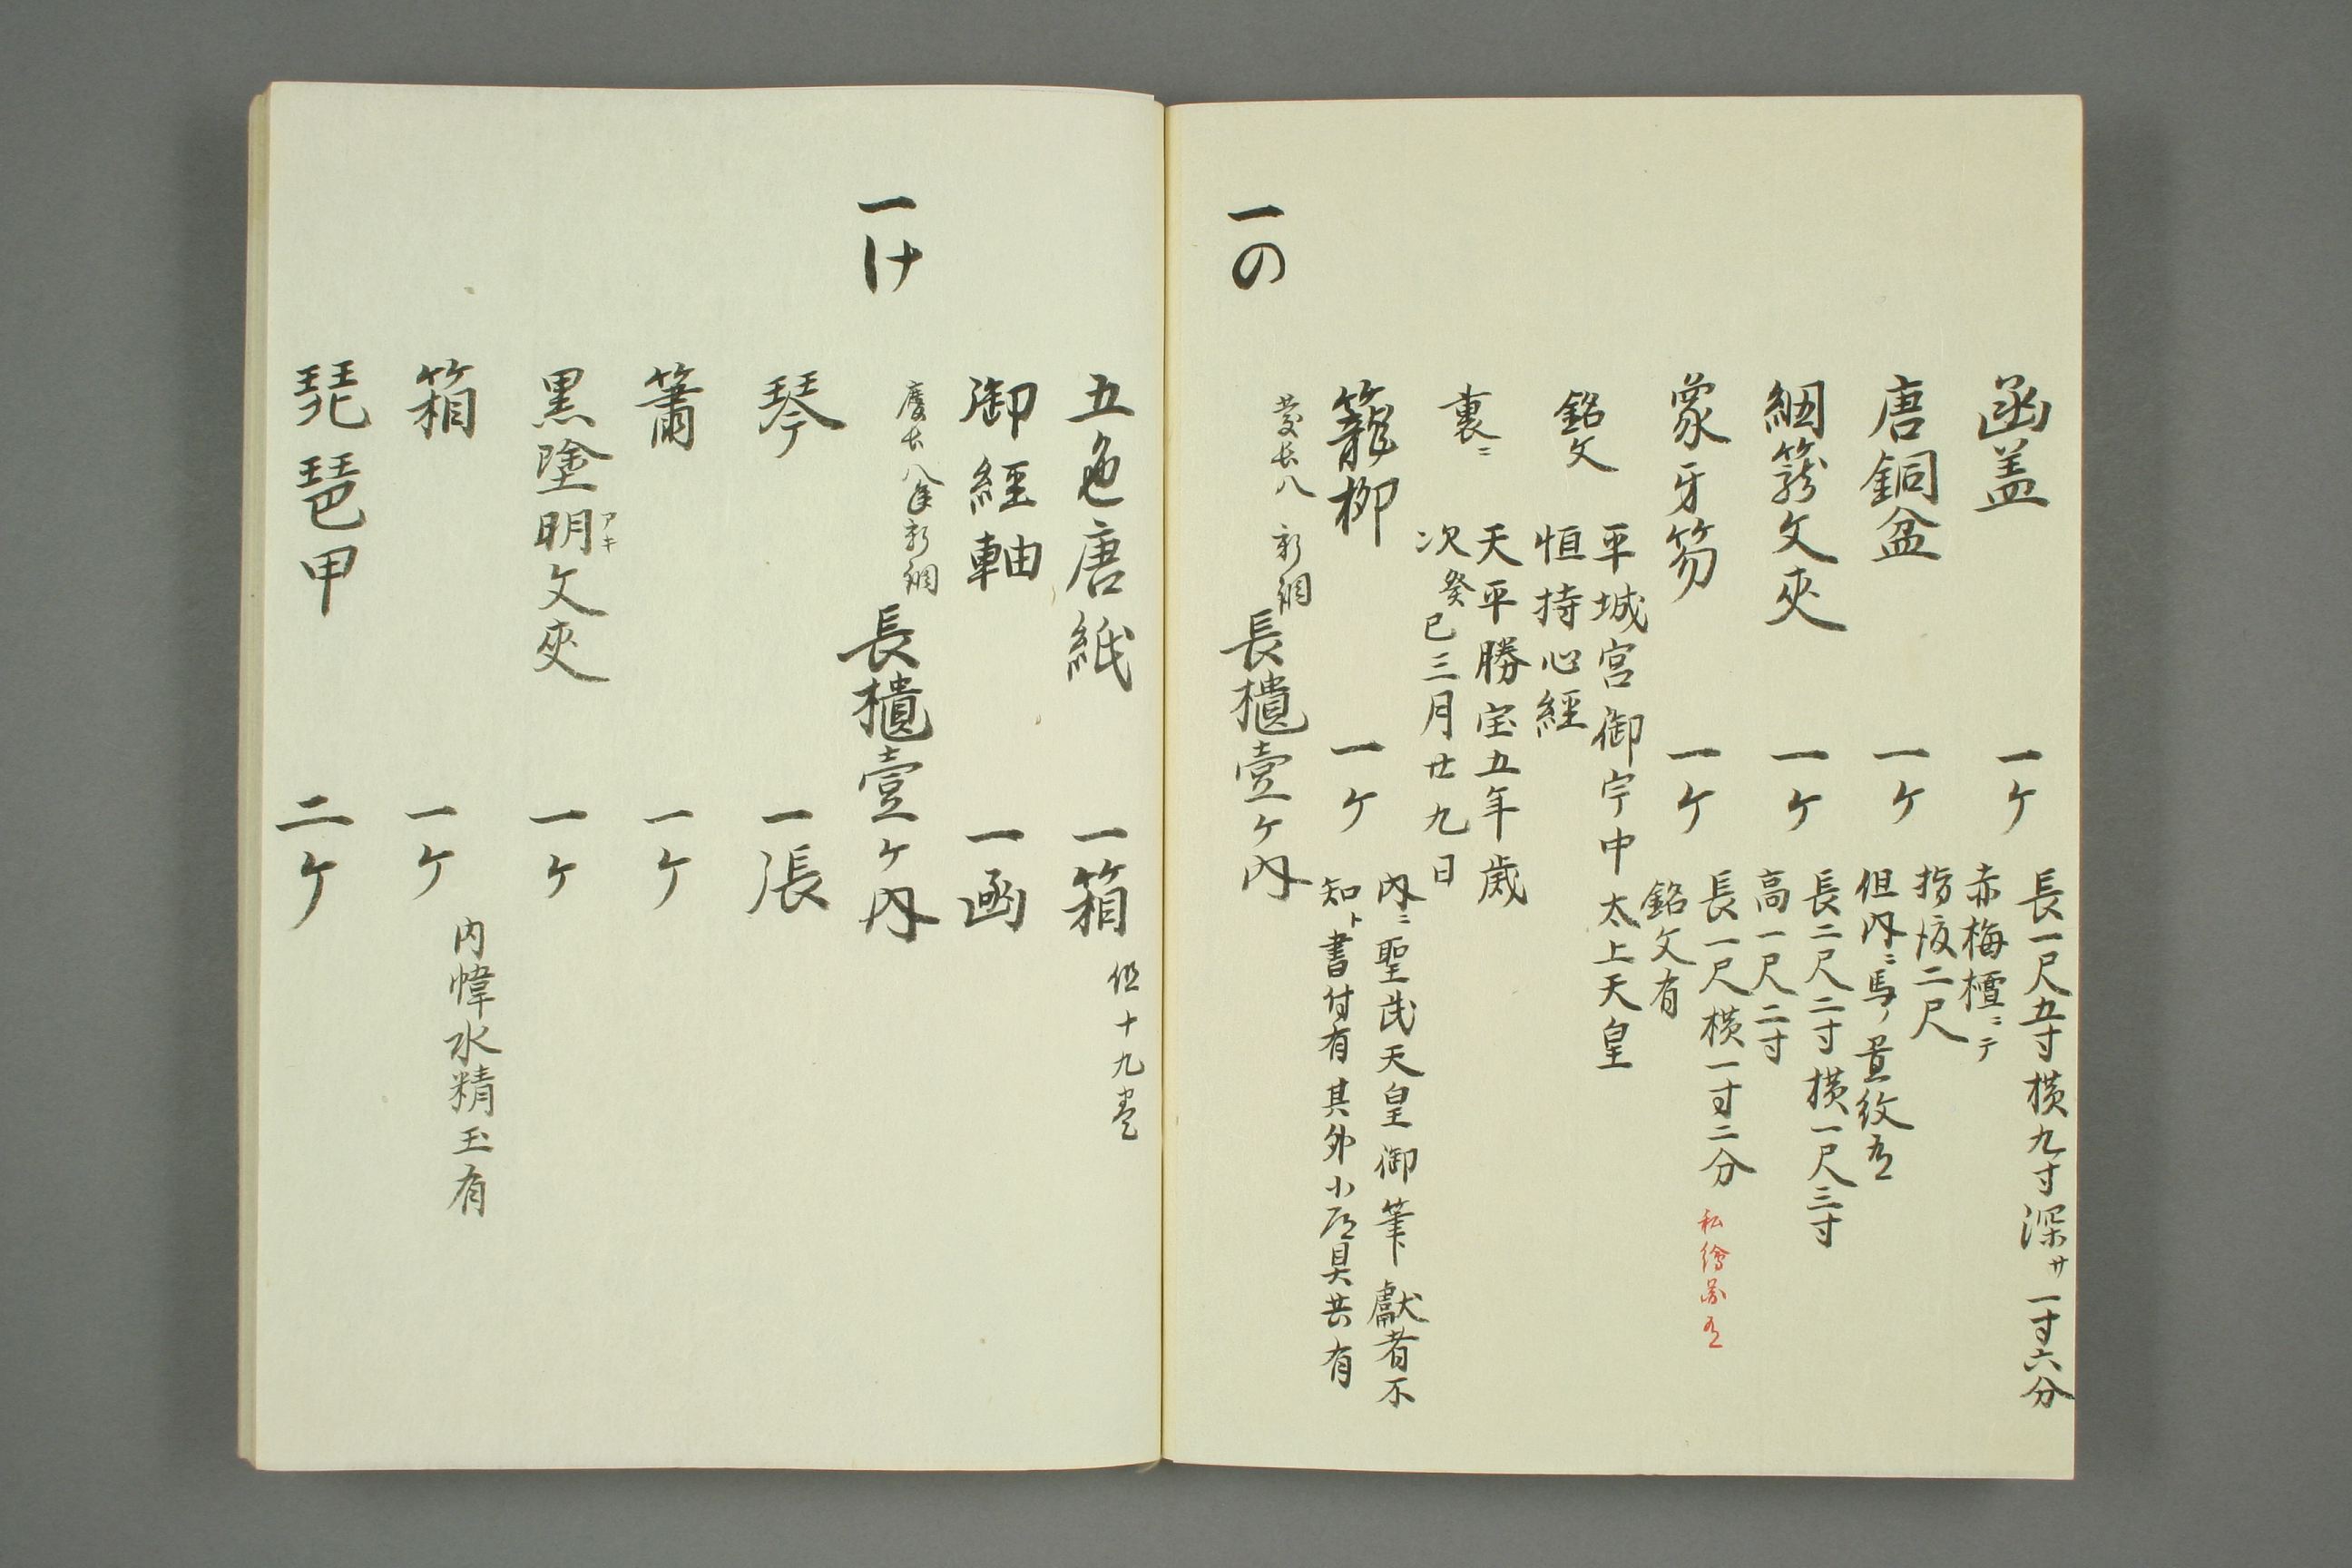 函盖 一ケ 長一尺五寸横九寸深サ一寸六分
赤梅檀ニテ
唐銅盆 一ケ 指渡二尺
但内ニ馬ノ畫紋有
細籠文夾 一ケ 長二尺二寸横一尺三寸
高一尺二寸
象牙笏 一ケ 長一尺横一寸二分 私繪圖有
銘文有
銘文 平城宮御宇中太上天皇
恒持心經
裏ニ 天平勝宝五年歳
次癸巳三月廿九日
籠柳 一ケ 内ニ聖武天皇御筆獻者不
知ト書付有其外小道具共有
一の 慶長八 新調 長櫃壹ケ内
五色唐紙 一箱 但十九巻
御經軸 一函
一け 慶長八年新調 長櫃壹ケ内
琴 一張
簫 一ケ
黒塗明アキ文夾 一ケ
箱 一ケ 内幃水精玉有
琵琶甲 二ケ